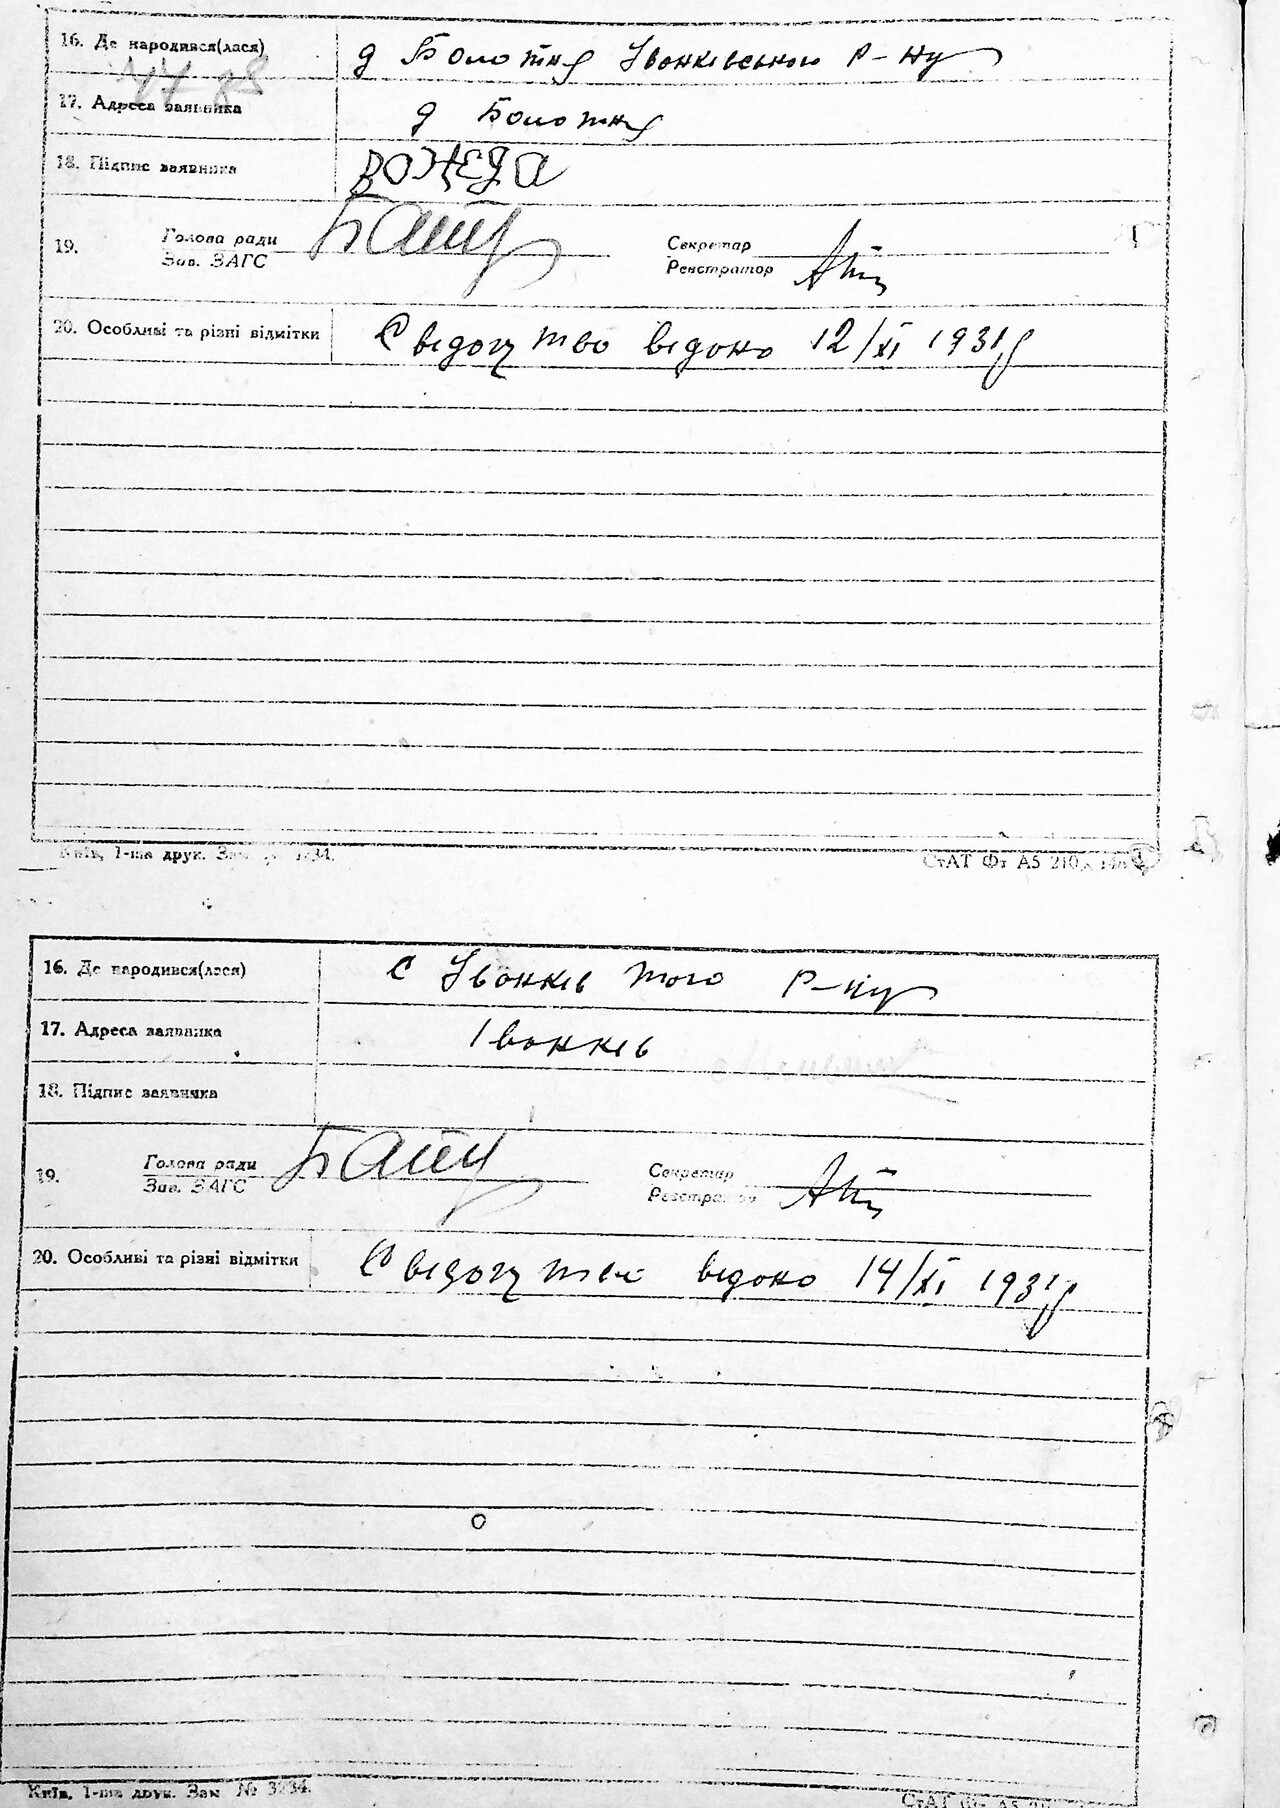 16. Де народився(лася) д Болотня Іванківського р-ну
17. Адреса заявника д Болотня
18. Підпис заявника
19. Голова ради Секретар
Зав. ЗАГС Реєстратор
20. Особливі та різні відмітки Свідоцтво відано 12/XI 1931р
Київ, 1-ша друк. Зам 3234.
СтАТ Фт А5 210
16. Де народився(лася) с Іванків того р-ну
17. Адреса заявника Іванків
18. Підпис заявника
19. Голова ради Секретар
Зав. ЗАГС Реєстратор
20. Особливі та різні відмітки Свідоцтво відано 14/XI 1931р
Київ, 1-ша друк. Зам № 3234.
СтАТ Фт А5